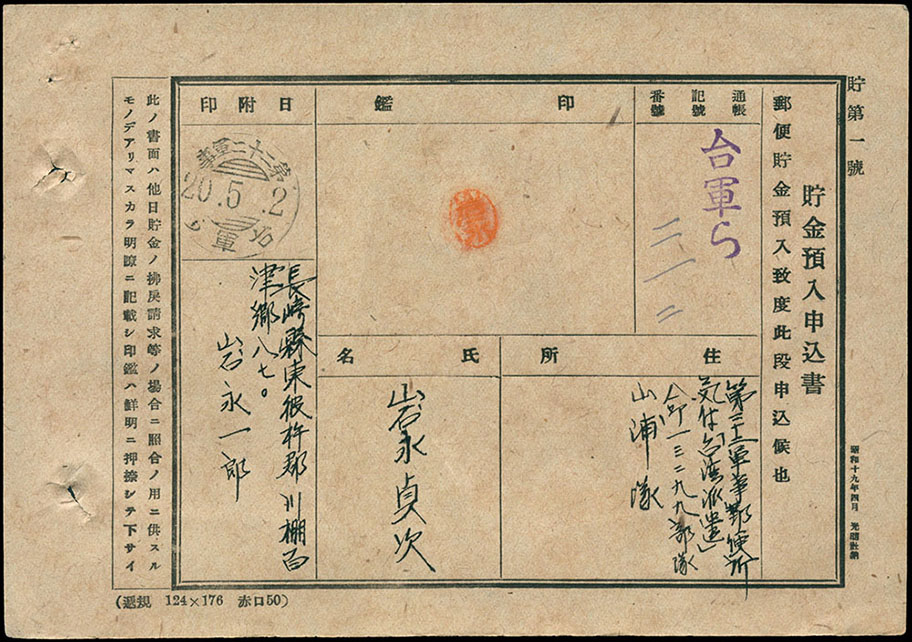 貯第一號
貯金預入申込書
郵便貯金預入致度此段申込候也
通帳
記號
番號
台軍ら
二一二
印鑑
日附印
第二十二軍事
20.5.2
台軍
ら
住所
第二十二軍事郵便所
気付台湾派遣
一三二九九部隊
山浦隊
氏名
岩永貞次
長崎縣東彼杵郡川棚百
津郷八七。
岩永一郎
此ノ書面ハ他日貯金ノ拂戻請求等ノ場合ニ照合ノ用ニ供スル
モノデアリマスカラ明瞭ニ記載シ印鑑ハ鮮明ニ押捺シテ下サイ
昭和十九年四月
(遞規 124×176 赤口50)